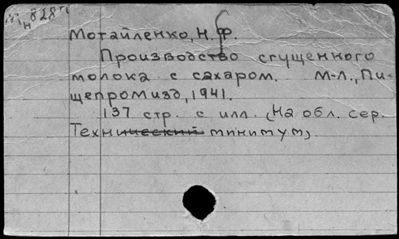 Мотайленко, Н. Ф.
Производство сгущенного
молока с сахаром. М-Л., Пи-
щепромизд, 1941.
137 стр. с илл. (На обл. сер.
Технический минимум).